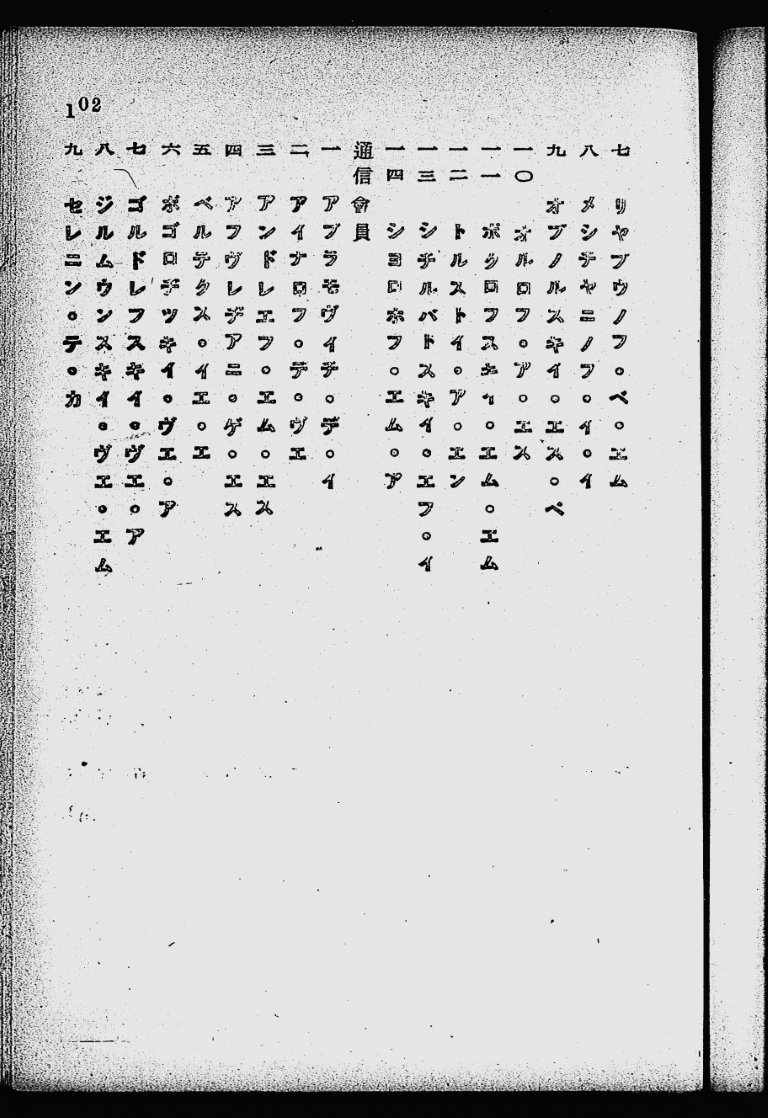 102
七 リヤブウノフ。ペ。エム
八 メシチヤニノフ。イ。イ
九 オブノルスキイ。エス。ペ
一〇 オルロフ。ア。エス
一一 ボクロフスキイ。エム。エム
一二 トルストイ。ア。エン
一三 シチルバドスキイ。エフ。イ
一四 シヨロホフ。エム。ア
通信會員
一 アブラモヴイチ。デ。イ
二 アイナロフ。デ。ヴエ
三 アンドレエフ。エム。エス
四 アフヴレデアニ。ゲ。エス
五 ベルテクス。イエ。エ
六 ボゴロヂツキイ。ヴエ。ア
七 ゴルドレフスキイ。ヴエ。ア
八 ジルムウンスキイ。ヴエ。エム
九 セレニン。テ。カ